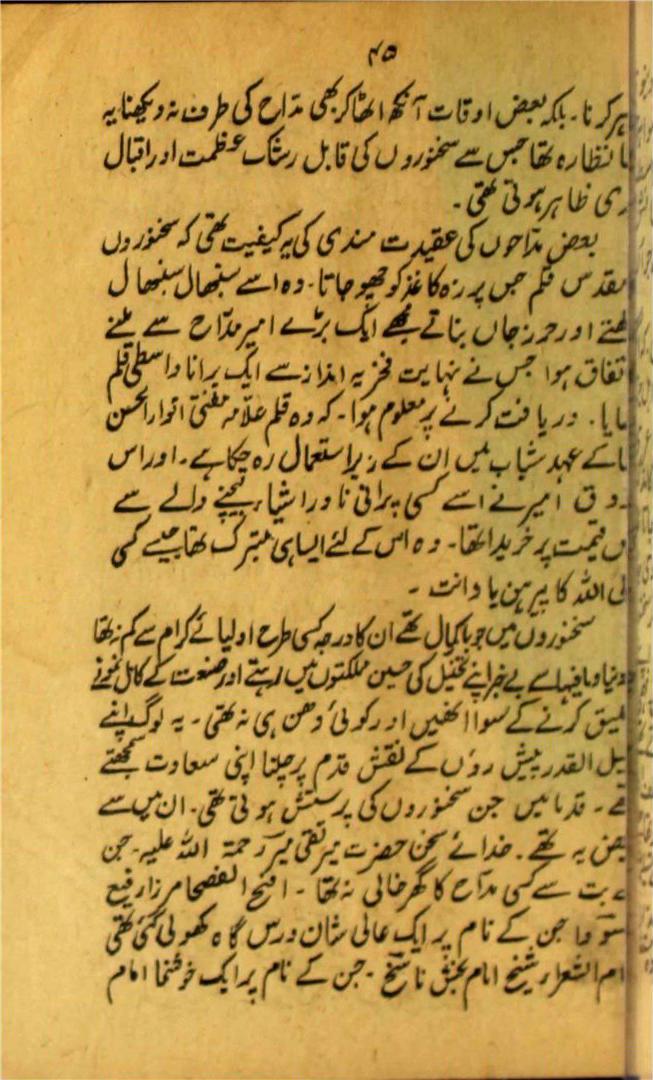 ۴۵
کرنا۔ بلکہ بعض اوقات آنکھ اٹھا کر بھی مدّاح کی طرف نہ دیکھنا یہ
نظارہ تھا جس سے سخنوروں کی قابل رشک عظمت اور اقبال
ظاہر ہوتی تھی۔
بعض مدّاحوں کی عقیدت مندی کی یہ کیفیت تھی کہ سخنوروں
قلم جس پرزہ کاغذ کو چھو جاتا۔ وہ اسے سنبھال سنبھال
اور حرز جاں بناتے مجھے ایک بڑے امیر مدّاح سے ملنے
اتفاق ہوا جس نے نہایت فخریہ انداز سے ایک پرانا واسطی قلم
دریافت کرنے پر معلوم ہوا۔ کہ وہ قلم علّامہ مفتی انوارالحسن
کے عہد شباب میں ان کے زیر استعمال رہ چکا ہے۔ اور اس
امیر نے اسے کسی پرانی نادر اشیاء بیچنے والے سے
قیمت پر خریدا تھا۔ وہ اس کے لئے ایسا ہی متبرک تھا جیسے کسی
اللہ کا پیرہن یا دانت۔
سخنوروں میں جو باکمال تھے ان کا درجہ کسی طرح اولیائے کرام سے کم نہ تھا
دنیا و مافیہا سے بے خبر اپنے تخیل کی حسین مملکتوں میں رہتے اور صنعت کے کامل نمونے
کرنے کے سوا انھیں اور کوئی دھن ہی نہ تھی۔ یہ لوگ اپنے
القدر پیش روؤں کے نقش قدم پر چلنا اپنی سعادت سمجھتے
قدما میں جن سخنوروں کی پرستش ہوتی تھی۔ ان میں سے
بعض یہ تھے۔ خدائے سخن حضرت میر تقی میرؔ رحمۃ اللہ علیہ۔ جن
سے کسی مدّاح کا گھر خالی نہ تھا۔ افصح الفصحا مرزا رفیع
سوداؔ جن کے نام پر ایک عالی شان درس گاہ کھولی گئی تھی
الشعراء شیخ امام بخش ناسخؔ۔ جن کے نام پر ایک خوشنما امام